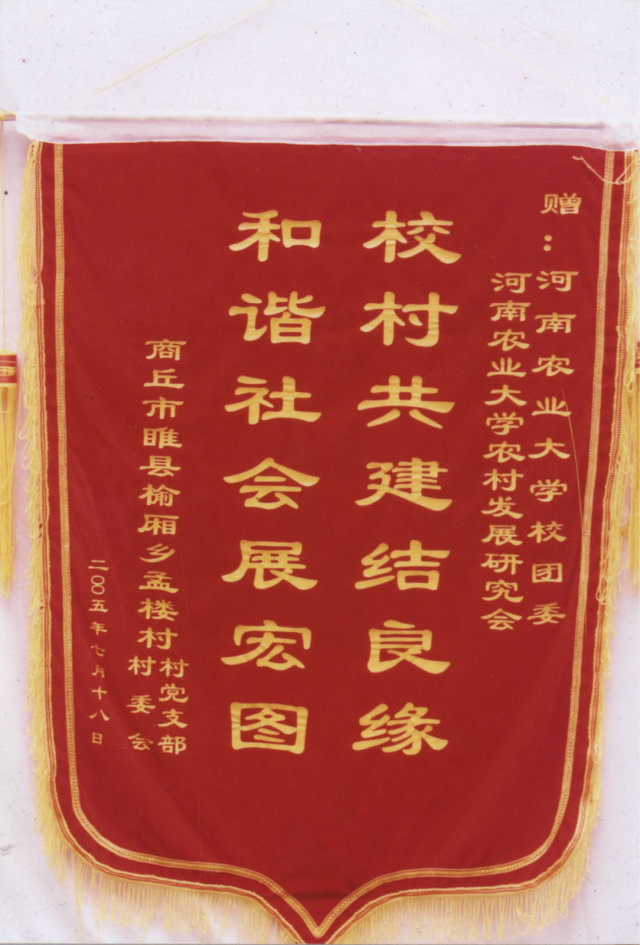 赠：河南农业大学校团委
河南农业大学农村发展研究会
校村共建结良缘
和谐社会展宏图
商丘市睢县榆厢乡孟楼村村党支部
村委会
二〇〇五年七月十八日